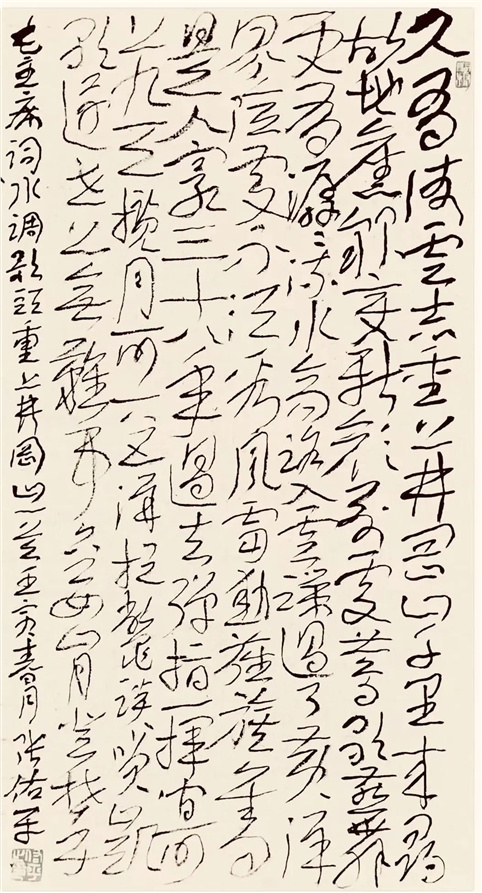 久有凌云志重上井岡山千里来尋
故地舊貌变新颜到處莺歌燕舞
更有潺潺流水高路入雲端過了黄洋
界险處不须看风雷動旌旗奮
是人寰三十八年過去弹指一揮间可
上九天揽月可下五洋捉鳖谈笑凯
歌還世上無難事只要肯登攀
毛主席词水调歌頭重上井岡山 壬寅春月 张佑平